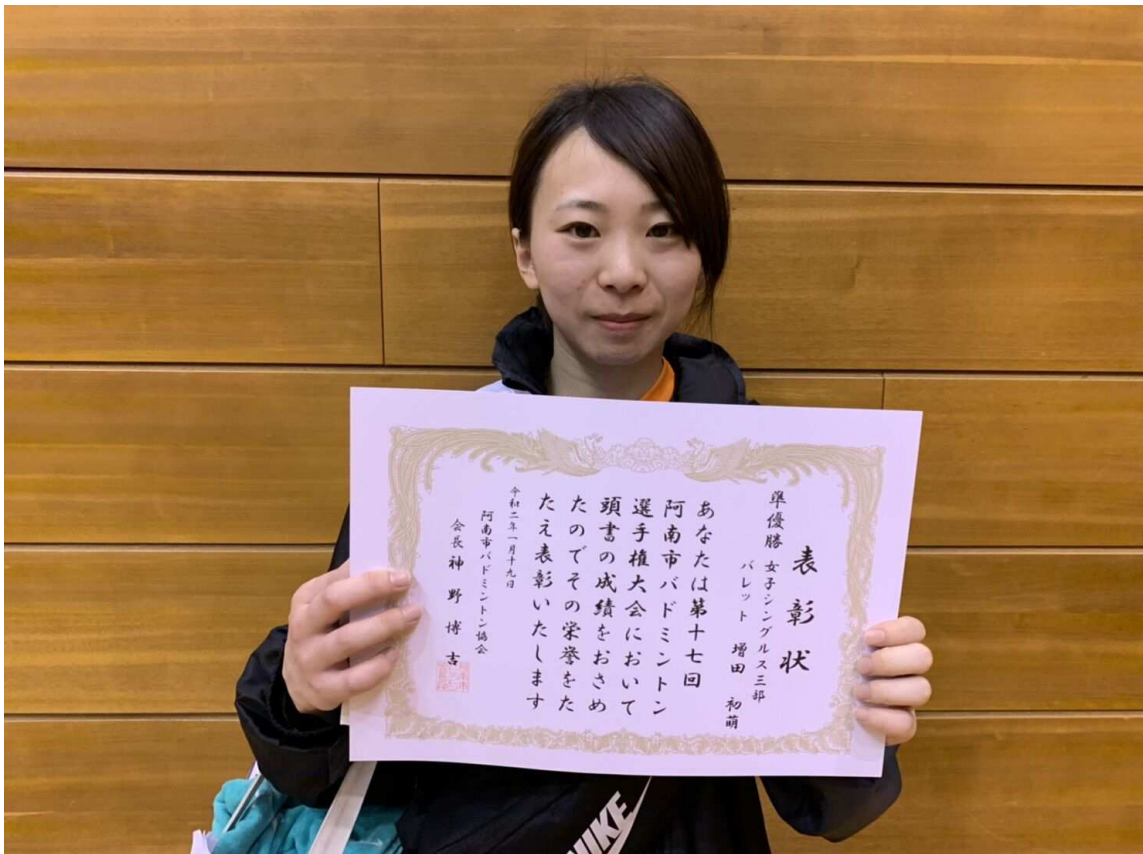 表彰状
準優勝 女子シングルス三部
バレット 増田 初萌
あなたは第十七回
阿南市バドミントン
選手権大会において
頭書の成績をおさめ
たのでその栄誉をた
たえ表彰いたします
令和二年一月十九日
阿南市バドミントン協会
会長 神野博吉
NIKE